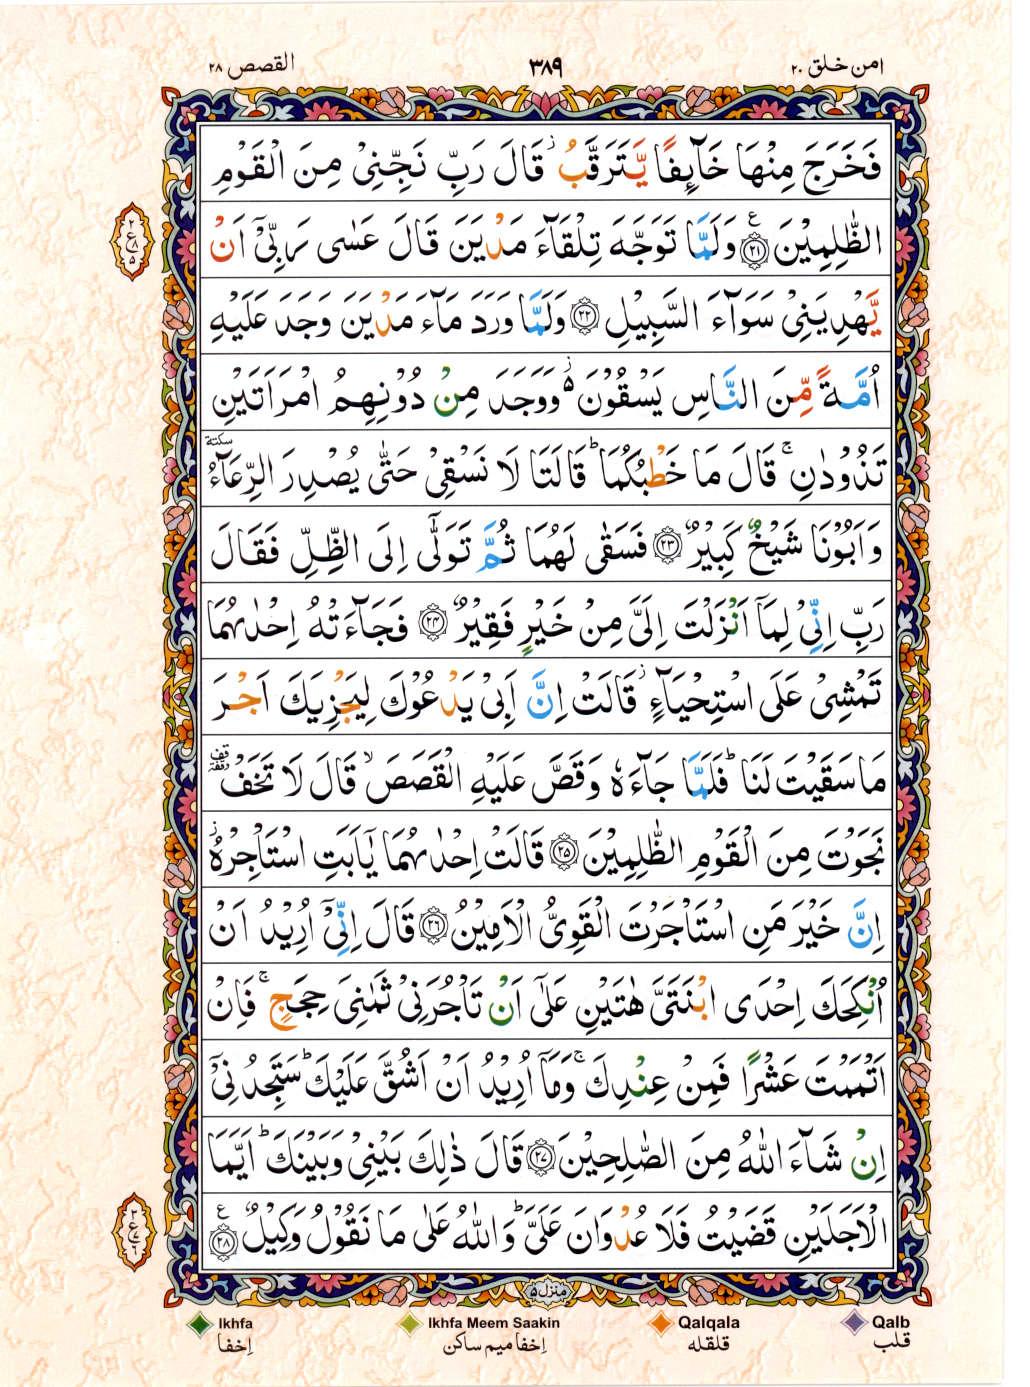 القصص ٢٨
٣٨٩
امن خلق ٢٠
فَخَرَجَ مِنْهَا خَآئِفًا يَّتَرَقَّبُ ۫ قَالَ رَبِّ نَجِّنِىْ مِنَ الْقَوْمِ
الظّٰلِمِيْنَ ﴿٢١﴾ ع وَلَمَّا تَوَجَّهَ تِلْقَآءَ مَدْيَنَ قَالَ عَسٰى رَبِّىْۤ اَنْ
يَّهْدِيَنِىْ سَوَآءَ السَّبِيْلِ ﴿٢٢﴾ وَلَمَّا وَرَدَ مَآءَ مَدْيَنَ وَجَدَ عَلَيْهِ
اُمَّةً مِّنَ النَّاسِ يَسْقُوْنَ ۬ۙ وَوَجَدَ مِنْ دُوْنِهِمُ امْرَاَتَيْنِ
تَذُوْدٰنِ ۚ قَالَ مَا خَطْبُكُمَا ؕ قَالَتَا لَا نَسْقِىْ حَتّٰى يُصْدِرَ الرِّعَآءُ سكتة
وَاَبُوْنَا شَيْخٌ كَبِيْرٌ ﴿٢٣﴾ فَسَقٰى لَهُمَا ثُمَّ تَوَلّٰٓى اِلَى الظِّلِّ فَقَالَ
رَبِّ اِنِّىْ لِمَاۤ اَنْزَلْتَ اِلَىَّ مِنْ خَيْرٍ فَقِيْرٌ ﴿٢٤﴾ فَجَآءَتْهُ اِحْدٰىهُمَا
تَمْشِىْ عَلَى اسْتِحْيَآءٍ ۫ قَالَتْ اِنَّ اَبِىْ يَدْعُوْكَ لِيَجْزِيَكَ اَجْرَ
مَا سَقَيْتَ لَنَا ؕ فَلَمَّا جَآءَهٗ وَقَصَّ عَلَيْهِ الْقَصَصَ ۙ قَالَ لَا تَخَفْ
نَجَوْتَ مِنَ الْقَوْمِ الظّٰلِمِيْنَ ﴿٢٥﴾ قَالَتْ اِحْدٰىهُمَا يٰۤاَبَتِ اسْتَاْجِرْهُ ۫
اِنَّ خَيْرَ مَنِ اسْتَاْجَرْتَ الْقَوِىُّ الْاَمِيْنُ ﴿٢٦﴾ قَالَ اِنِّىْۤ اُرِيْدُ اَنْ
اُنْكِحَكَ اِحْدَى ابْنَتَىَّ هٰتَيْنِ عَلٰٓى اَنْ تَاْجُرَنِىْ ثَمٰنِىَ حِجَجٍ ۚ فَاِنْ
اَتْمَمْتَ عَشْرًا فَمِنْ عِنْدِكَ ۚ وَمَاۤ اُرِيْدُ اَنْ اَشُقَّ عَلَيْكَ ؕ سَتَجِدُنِىْۤ
اِنْ شَآءَ اللّٰهُ مِنَ الصّٰلِحِيْنَ ﴿٢٧﴾ قَالَ ذٰلِكَ بَيْنِىْ وَبَيْنَكَ ؕ اَيَّمَا
الْاَجَلَيْنِ قَضَيْتُ فَلَا عُدْوَانَ عَلَىَّ ؕ وَاللّٰهُ عَلٰى مَا نَقُوْلُ وَكِيْلٌ ﴿٢٨﴾ ع
منزل ٥
Ikhfa
Ikhfa Meem Saakin
Qalqala
Qalb
اِخفا
اِخفا میم ساکن
قلقله
قلب